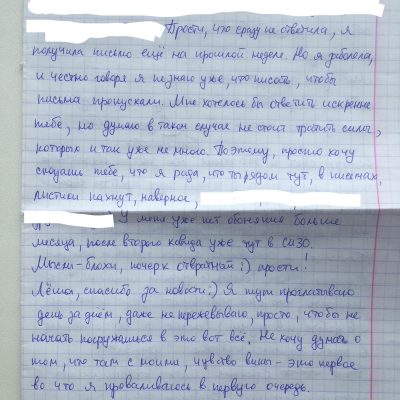 Прости, что сразу не ответила, я
получила письмо ещё на прошлой неделе. Но я заболела,
и честно говоря я не знаю уже, что писать, чтобы
письма пропускали. Мне хотелось бы ответить искренне
тебе, но думаю в таком случае не стоит тратить силы,
которых и так уже не много. Поэтому, просто хочу
сказать тебе, что я рада, что ты рядом тут, в письмах,
листики пахнут, наверное,
У меня уже нет обоняния больше
месяца, после второго ковида уже тут в СИЗО.
Мысли-блохи, почерк отвратный :) прости!
Лёша, спасибо за новости :) Я тут проглатываю
день за днём, даже не пережёвываю, просто, чтобы не
начать погружаться в это вот всё. Не хочу думать о
том, что там с моими, чувство вины - это первое
во что я проваливаюсь в первую очередь.